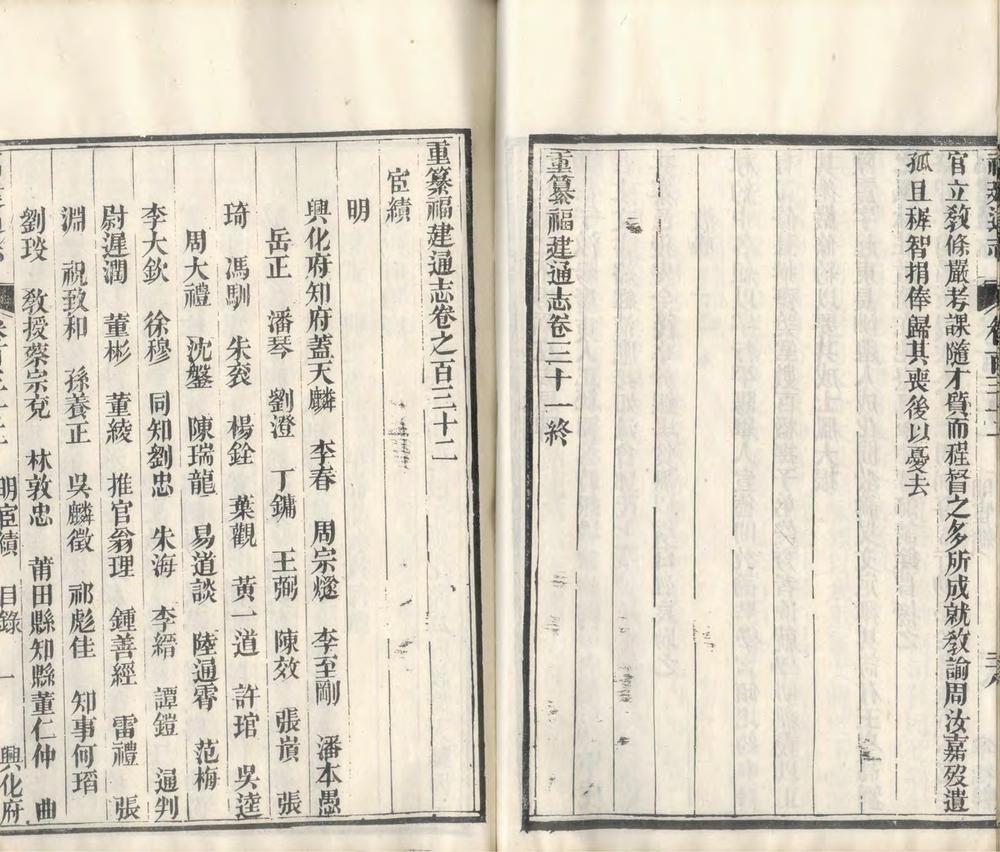 官立敎條嚴考課隨才質而程督之多所成就敎諭周汝嘉歿遺
孤且穉智捐俸歸其喪後以憂去
重纂福建通志卷三十一終
重纂福建通志卷之百三十二
宦績
明
興化府知府蓋天麟 李春 周宗燧 李至剛 潘本愚
岳正 潘琴 劉澄 丁鏞 王弼 陳效 張嵿 張
琦 馮馴 朱衮 楊銓 葉觀 黃一道 許琯 吳逵
周大禮 沈盤 陳瑞龍 易道談 陸通霄 范梅
李大欽 徐穆 同知劉忠 朱海 李縉 譚鎧 通判
尉遲潤 董彬 董綾 推官翁理 鍾善經 雷禮 張
淵 祝致和 孫養正 吳麟徵 祁彪佳 知事何瑫
劉珓 敎授蔡宗兗 林敦忠 莆田縣知縣董仁仲 曲
明宦績 目錄 一 興化府